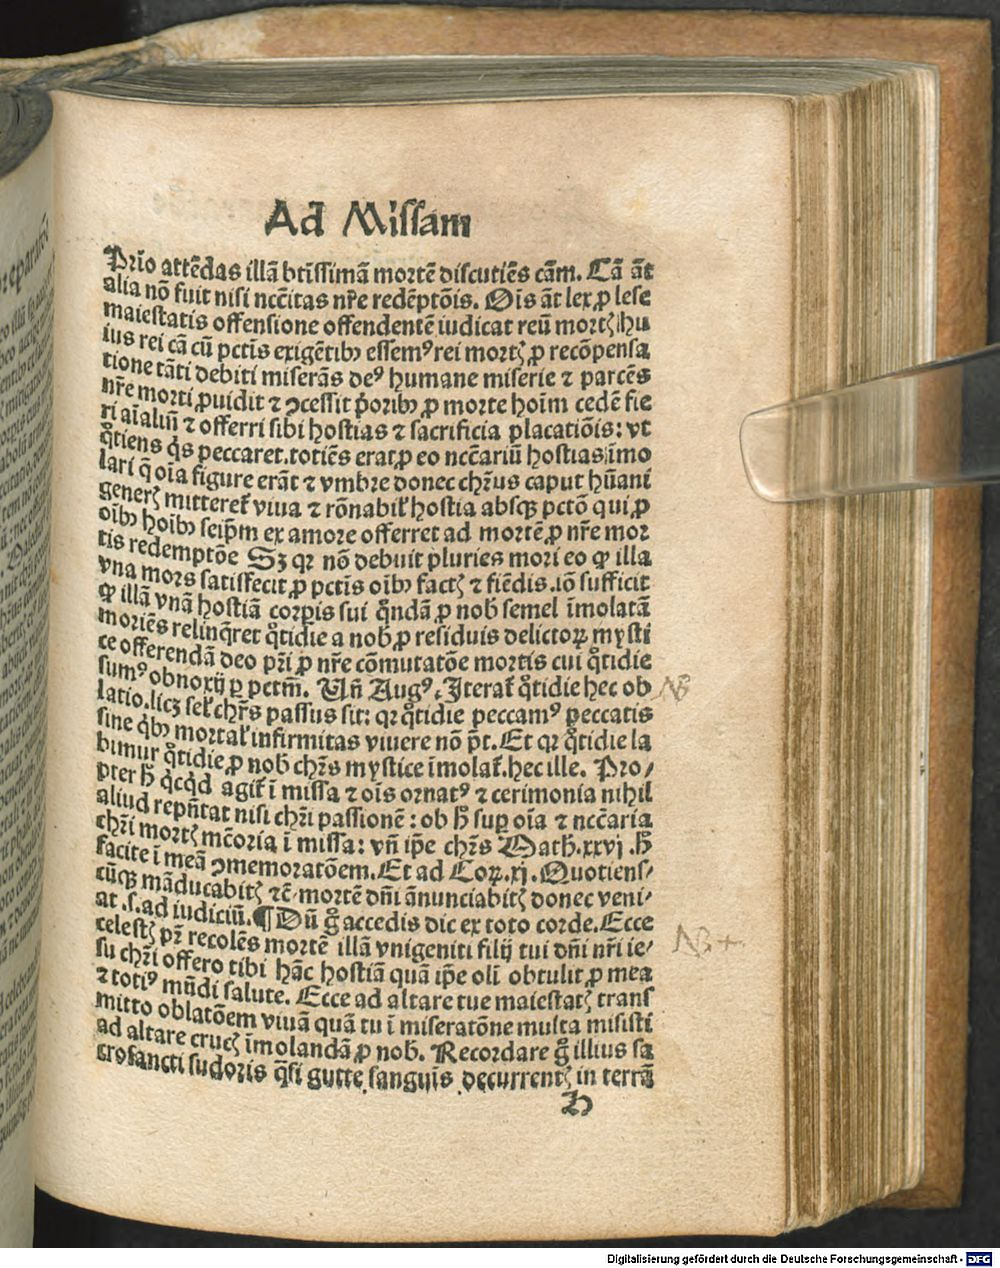 Ad Missam
Prĩo attẽdas illã btĩssimã mortẽ discutiẽs cãm. Cã ãt
alia nõ fuit nisi nccẽitas nr̃e redẽptõis. Oĩs ãt lex ꝓ lese
maiestatis offensione offendentẽ iudicat reũ mortꝭ hu
ius rei cã cũ pctĩs exigẽtibꝰ essemꝰ rei mortꝭ ꝓ recõpensa
tione tãti debiti miserãs deꝰ humane miserie ⁊ parcẽs
nr̃e morti ꝓuidit ⁊ ꝯcessit p̃oribꝰ ꝓ morte hoĩm cedẽ fie
ri aĩaliũ ⁊ offerri sibi hostias ⁊ sacrificia placatiõis: vt
q̃tiens q̃s peccaret. totiẽs erat ꝓ eo nccẽariũ hostias imo
lari q̃ oĩa figure erãt ⁊ vmbre donec chr̃us caput hũani
generꝭ mitteret̃ viua ⁊ rõnabil̃ hostia absqꝫ pctõ qui ꝓ
oĩbꝰ hoĩbꝰ seip̃m ex amore offerret ad mortẽ ꝓ nr̃e mor
tis redemptõe Sꝫ qr nõ debuit pluries mori eo ꝙ illa
vna mors satisfecit ꝓ pctĩs oĩbꝰ factꝭ ⁊ fiẽdis. iõ sufficit
ꝙ illã vnã hostiã corꝑis sui q̃ndã ꝓ nob̃ semel ĩmolatã
moriẽs relinq̃ret q̃tidie a nob̃ ꝓ residuis delictoꝝ mysti
ce offerendã deo pr̃i ꝓ nr̃e cõmutatõe mortis cui q̃tidie
sumꝰ obnoxij ꝑ pctm̃. Vñ Augꝰ. Iterat̃ q̃tidie hec ob
latio. licꝫ sel̃ chr̃s passus sit: qr q̃tidie peccamꝰ peccatis
sine q̃bꝰ mortal̃ infirmitas viuere nõ p̃t. Et qr q̃tidie la
bimur q̃tidie ꝓ nob̃ chr̃s mystice ĩmolat̃. hec ille. Pro/
pter h̃ q̃cq̃d agit̃ ĩ missa ⁊ oĩs ornatꝰ ⁊ cerimonia nihil
aliud repñtat nisi chr̃i passionẽ: ob h̃ suꝑ oĩa ⁊ nccẽaria
chr̃i mortꝭ mẽoria ĩ missa: vñ ip̃e chr̃s Math̃. xxvj. h̃
facite ĩ meã ꝯmemoratõem. Et ad Coꝝ. xj. Quotiens/
cũqꝫ mãducabitꝭ ⁊c̃ mortẽ dñi ãnunciabitꝭ donec veni/
at .s. ad iudiciũ. ¶ Dũ g̃ accedis dic ex toto corde. Ecce
celestꝭ pr̃ recolẽs mortẽ illã vnigeniti filij tui dñi nr̃i ie/
su chr̃i offero tibi hãc hostiã quã ip̃e oli obtulit ꝓ mea
⁊ totiꝰ mũdi salute. Ecce ad altare tue maiestatꝭ trans
mitto oblatõem viuã quã tu ĩ miseratõne multa misisti
ad altare crucꝭ ĩmolandã ꝓ nob̃. Recordare g̃ illius sa
crosancti sudoris q̃si gutte sanguĩs decurrentꝭ in terrã
h
NB
NB +
Digitalisierung gefördert durch die Deutsche Forschungsgemeinschaft - DFG